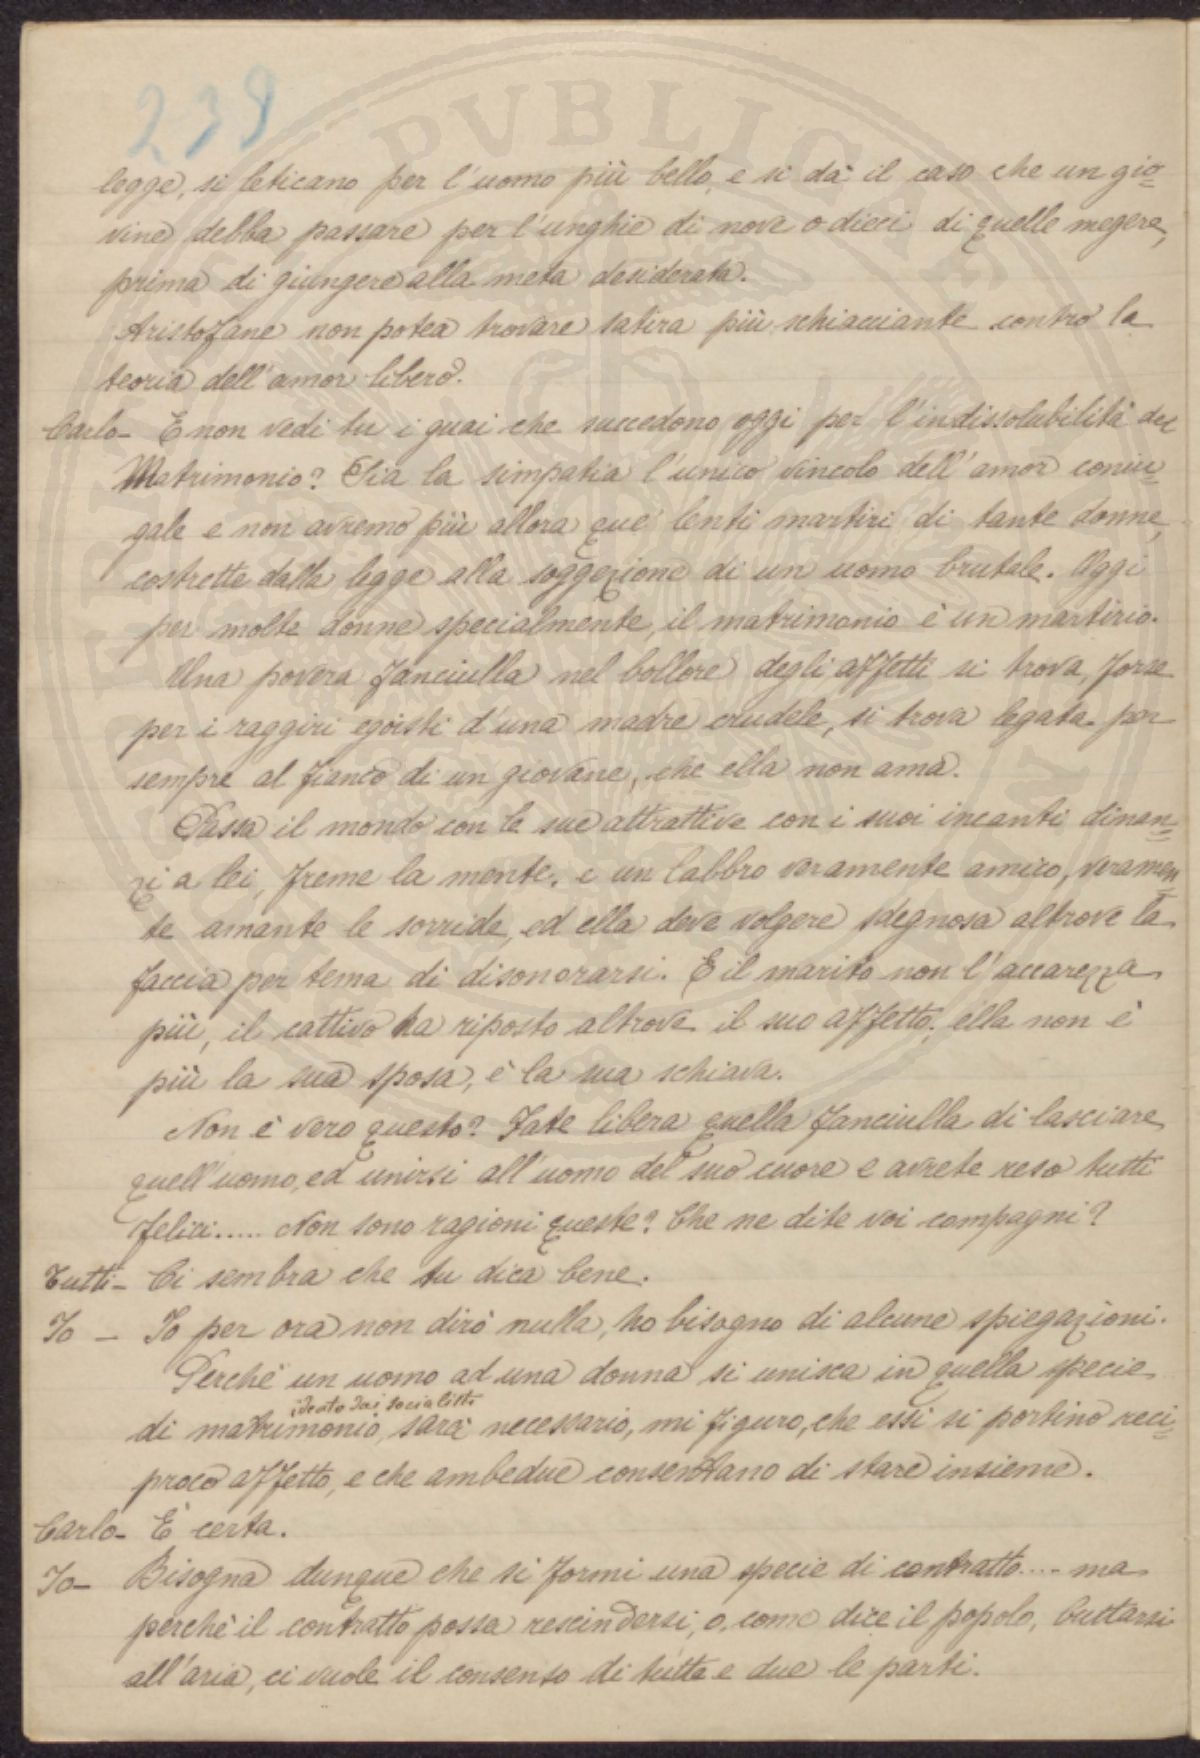 239
legge, si leticano per l'uomo più bello, e si dà il caso che un gio=
vine debba passare per l'unghie di nove o dieci di quelle megere,
prima di giungere alla meta desiderata.
Aristofane non potea trovare satira più schiacciante contro la
teoria dell'amor libero.
Carlo - E non vedi tu i guai che succedono oggi per l'indissolubilità del
Matrimonio? Sia la simpatia l'unico vincolo dell'amor coniu=
gale e non avremo più allora que' lenti martiri di tante donne,
costrette dalla legge alla soggezione di un uomo brutale. Oggi
per molte donne specialmente, il matrimonio è un martirio.
Una povera fanciulla nel bollore degli affetti si trova, forse
per i raggiri egoisti d'una madre crudele, si trova legata per
sempre al fianco di un giovane, che ella non ama.
Passa il mondo con le sue attrattive con i suoi incanti dinan=
zi a lei, freme la mente, e un labbro veramente amico, veramen=
te amante le sorride, ed ella deve volgere sdegnosa altrove la
faccia per tema di disonorarsi. E il marito non l'accarezza
più, il cattivo ha riposto altrove il suo affetto; ella non è
più la sua sposa, è la sua schiava.
Non è vero questo? Fate libera quella fanciulla di lasciare
quell'uomo, ed unirsi all'uomo del suo cuore e avrete reso tutti
felici..... Non sono ragioni queste? Che ne dite voi compagni?
Tutti - Ci sembra che tu dica bene.
Io - Io per ora non dirò nulla, ho bisogno di alcune spiegazioni.
Perchè un uomo ad una donna si unisca in quella specie
ideato dai socialisti
di matrimonio, sarà necessario, mi figuro, che essi si portino reci=
proco affetto, e che ambedue consentano di stare insieme.
Carlo - È certa.
Io - Bisogna dunque che si formi una specie di contratto.... ma
perchè il contratto possa rescindersi, o, come dice il popolo, buttarsi
all'aria, ci vuole il consenso di tutte e due le parti.